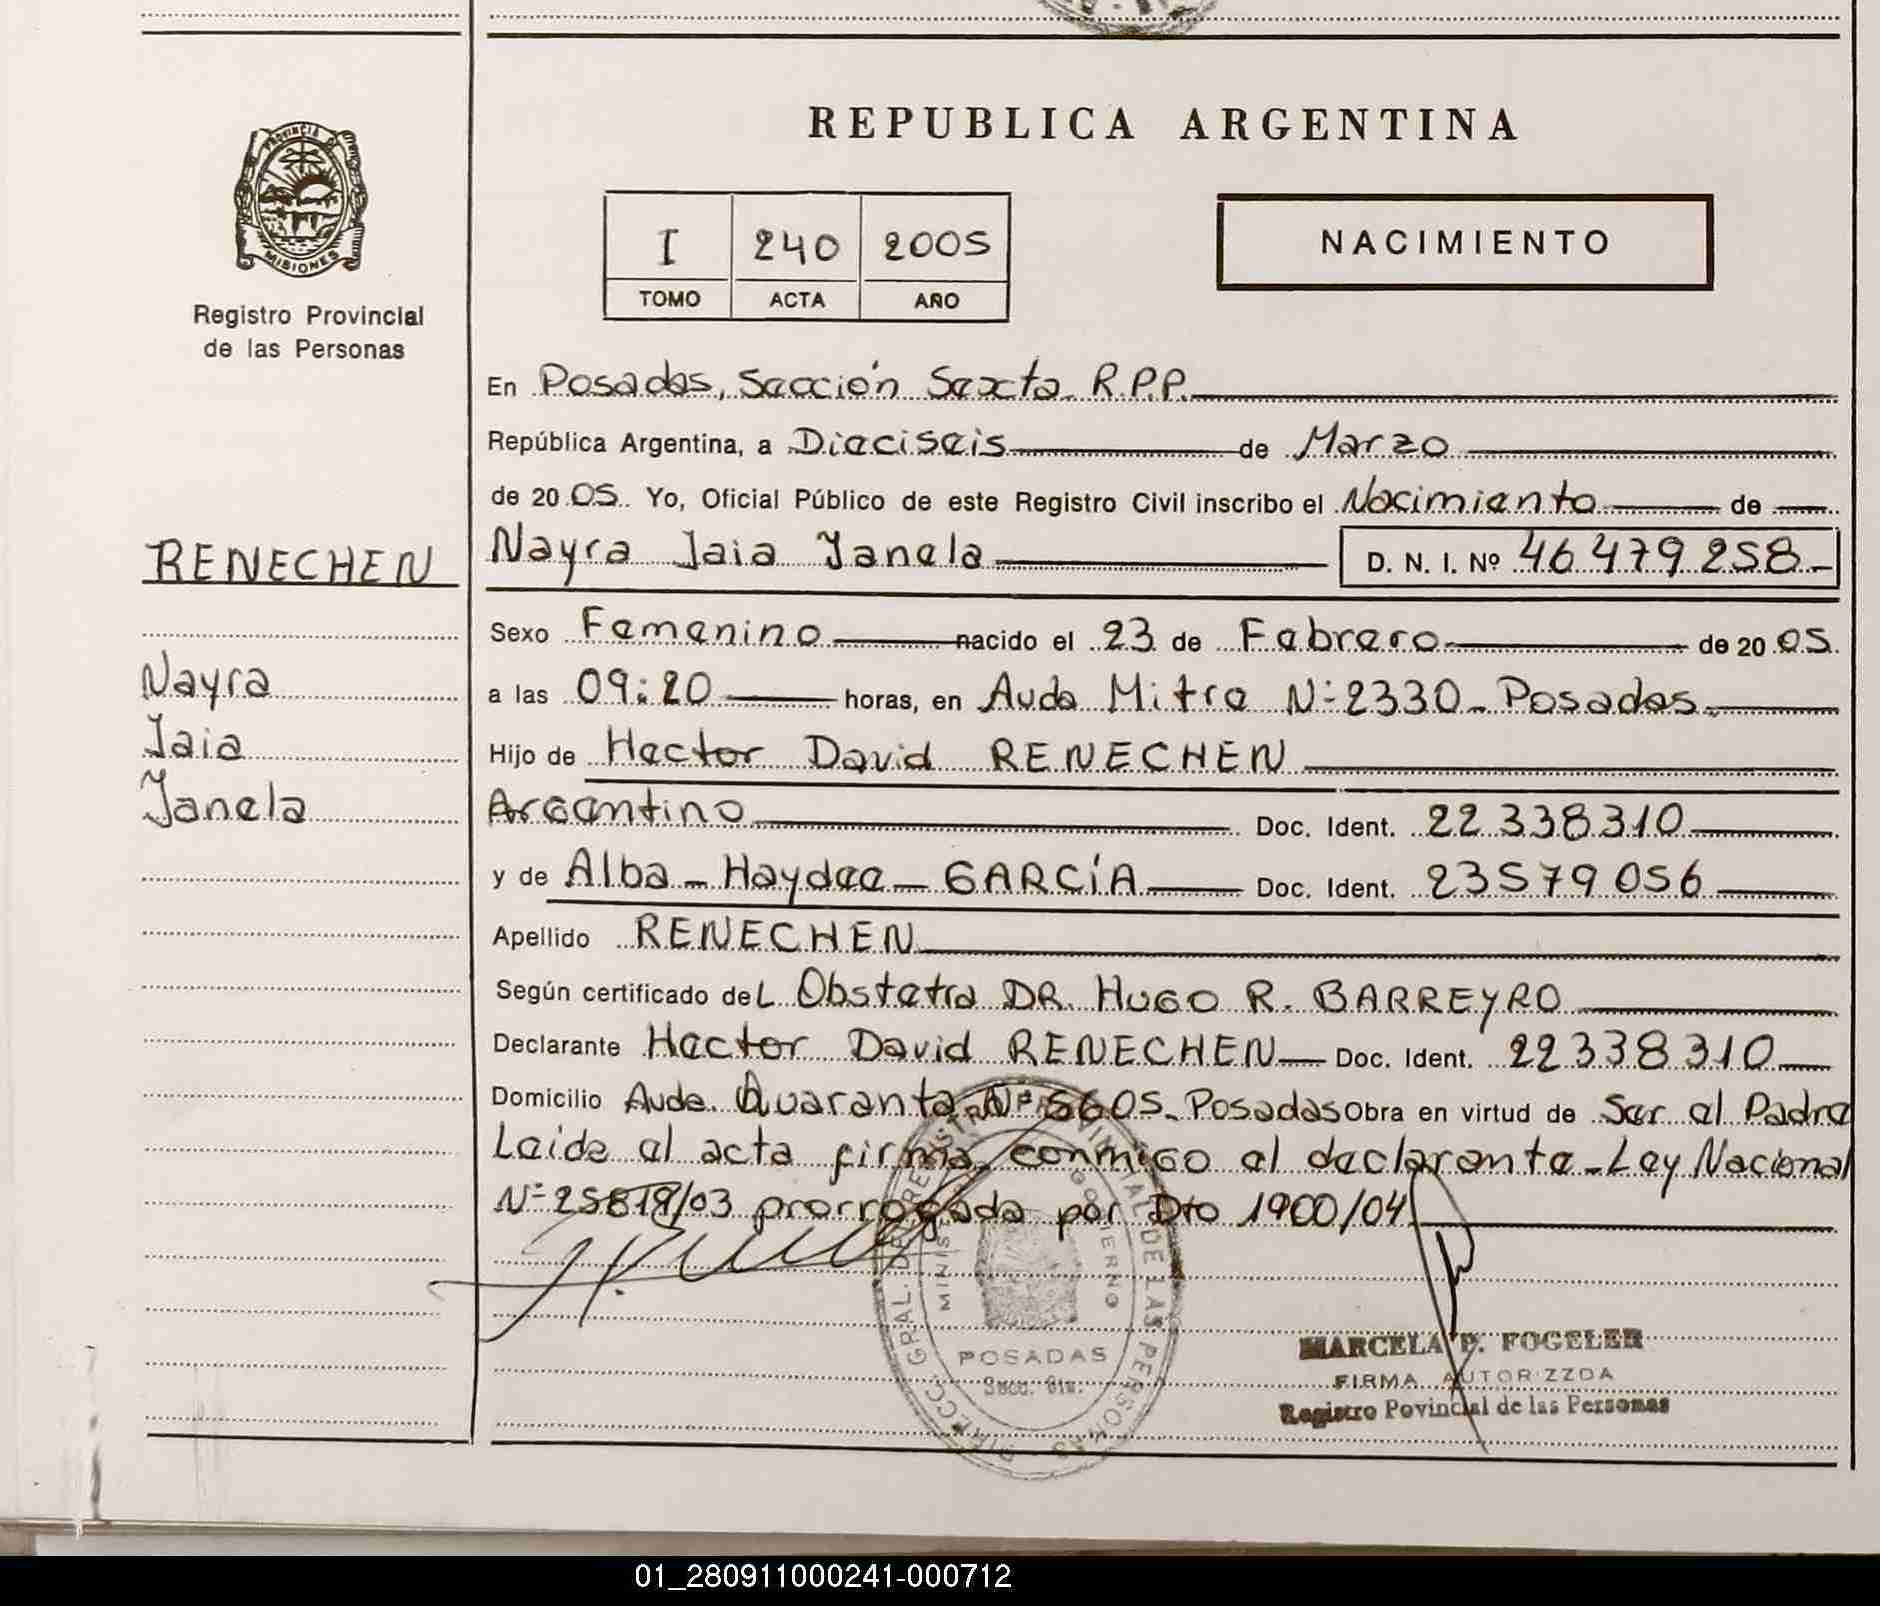 REPUBLICA ARGENTINA
PROVINCIA DE
MISIONES
Registro Provincial
de las Personas
I 240 2005
TOMO ACTA AÑO
NACIMIENTO
En Posadas, Sección Sexta R.P.P.
República Argentina, a Dieciseis de Marzo
de 20 05. Yo, Oficial Público de este Registro Civil inscribo el Nacimiento de
RENECHEN
Nayra Jaia Janela D. N. I. Nº 46 479 258
Sexo Femenino nacido el 23 de Febrero de 20 05
Nayra
a las 09:20 horas, en Avda Mitre Nº 2330 - Posadas
Jaia
Hijo de Hector David RENECHEN
Janela
Argentino Doc. Ident. 22 338 310
y de Alba - Haydee - GARCÍA Doc. Ident. 23 579 056
Apellido RENECHEN
Según certificado deL Obstetra DR. HUGO R. BARREYRO
Declarante Hector David RENECHEN Doc. Ident. 22 338 310
Domicilio Avda. Quaranta Nº 5605 - Posadas Obra en virtud de Ser el Padre
Leide el acta firma conmigo el declarante - Ley Nacional
Nº 25819/03 prorrogada por Dto 1900/04
GRAL. DE REGISTRO PROVINCIAL DE LAS PERSONAS
GOBIERNO
POSADAS
MARCELA P. FOGELER
FIRMA AUTORIZZDA
Registro Povincial de las Personas
01_280911000241-000712